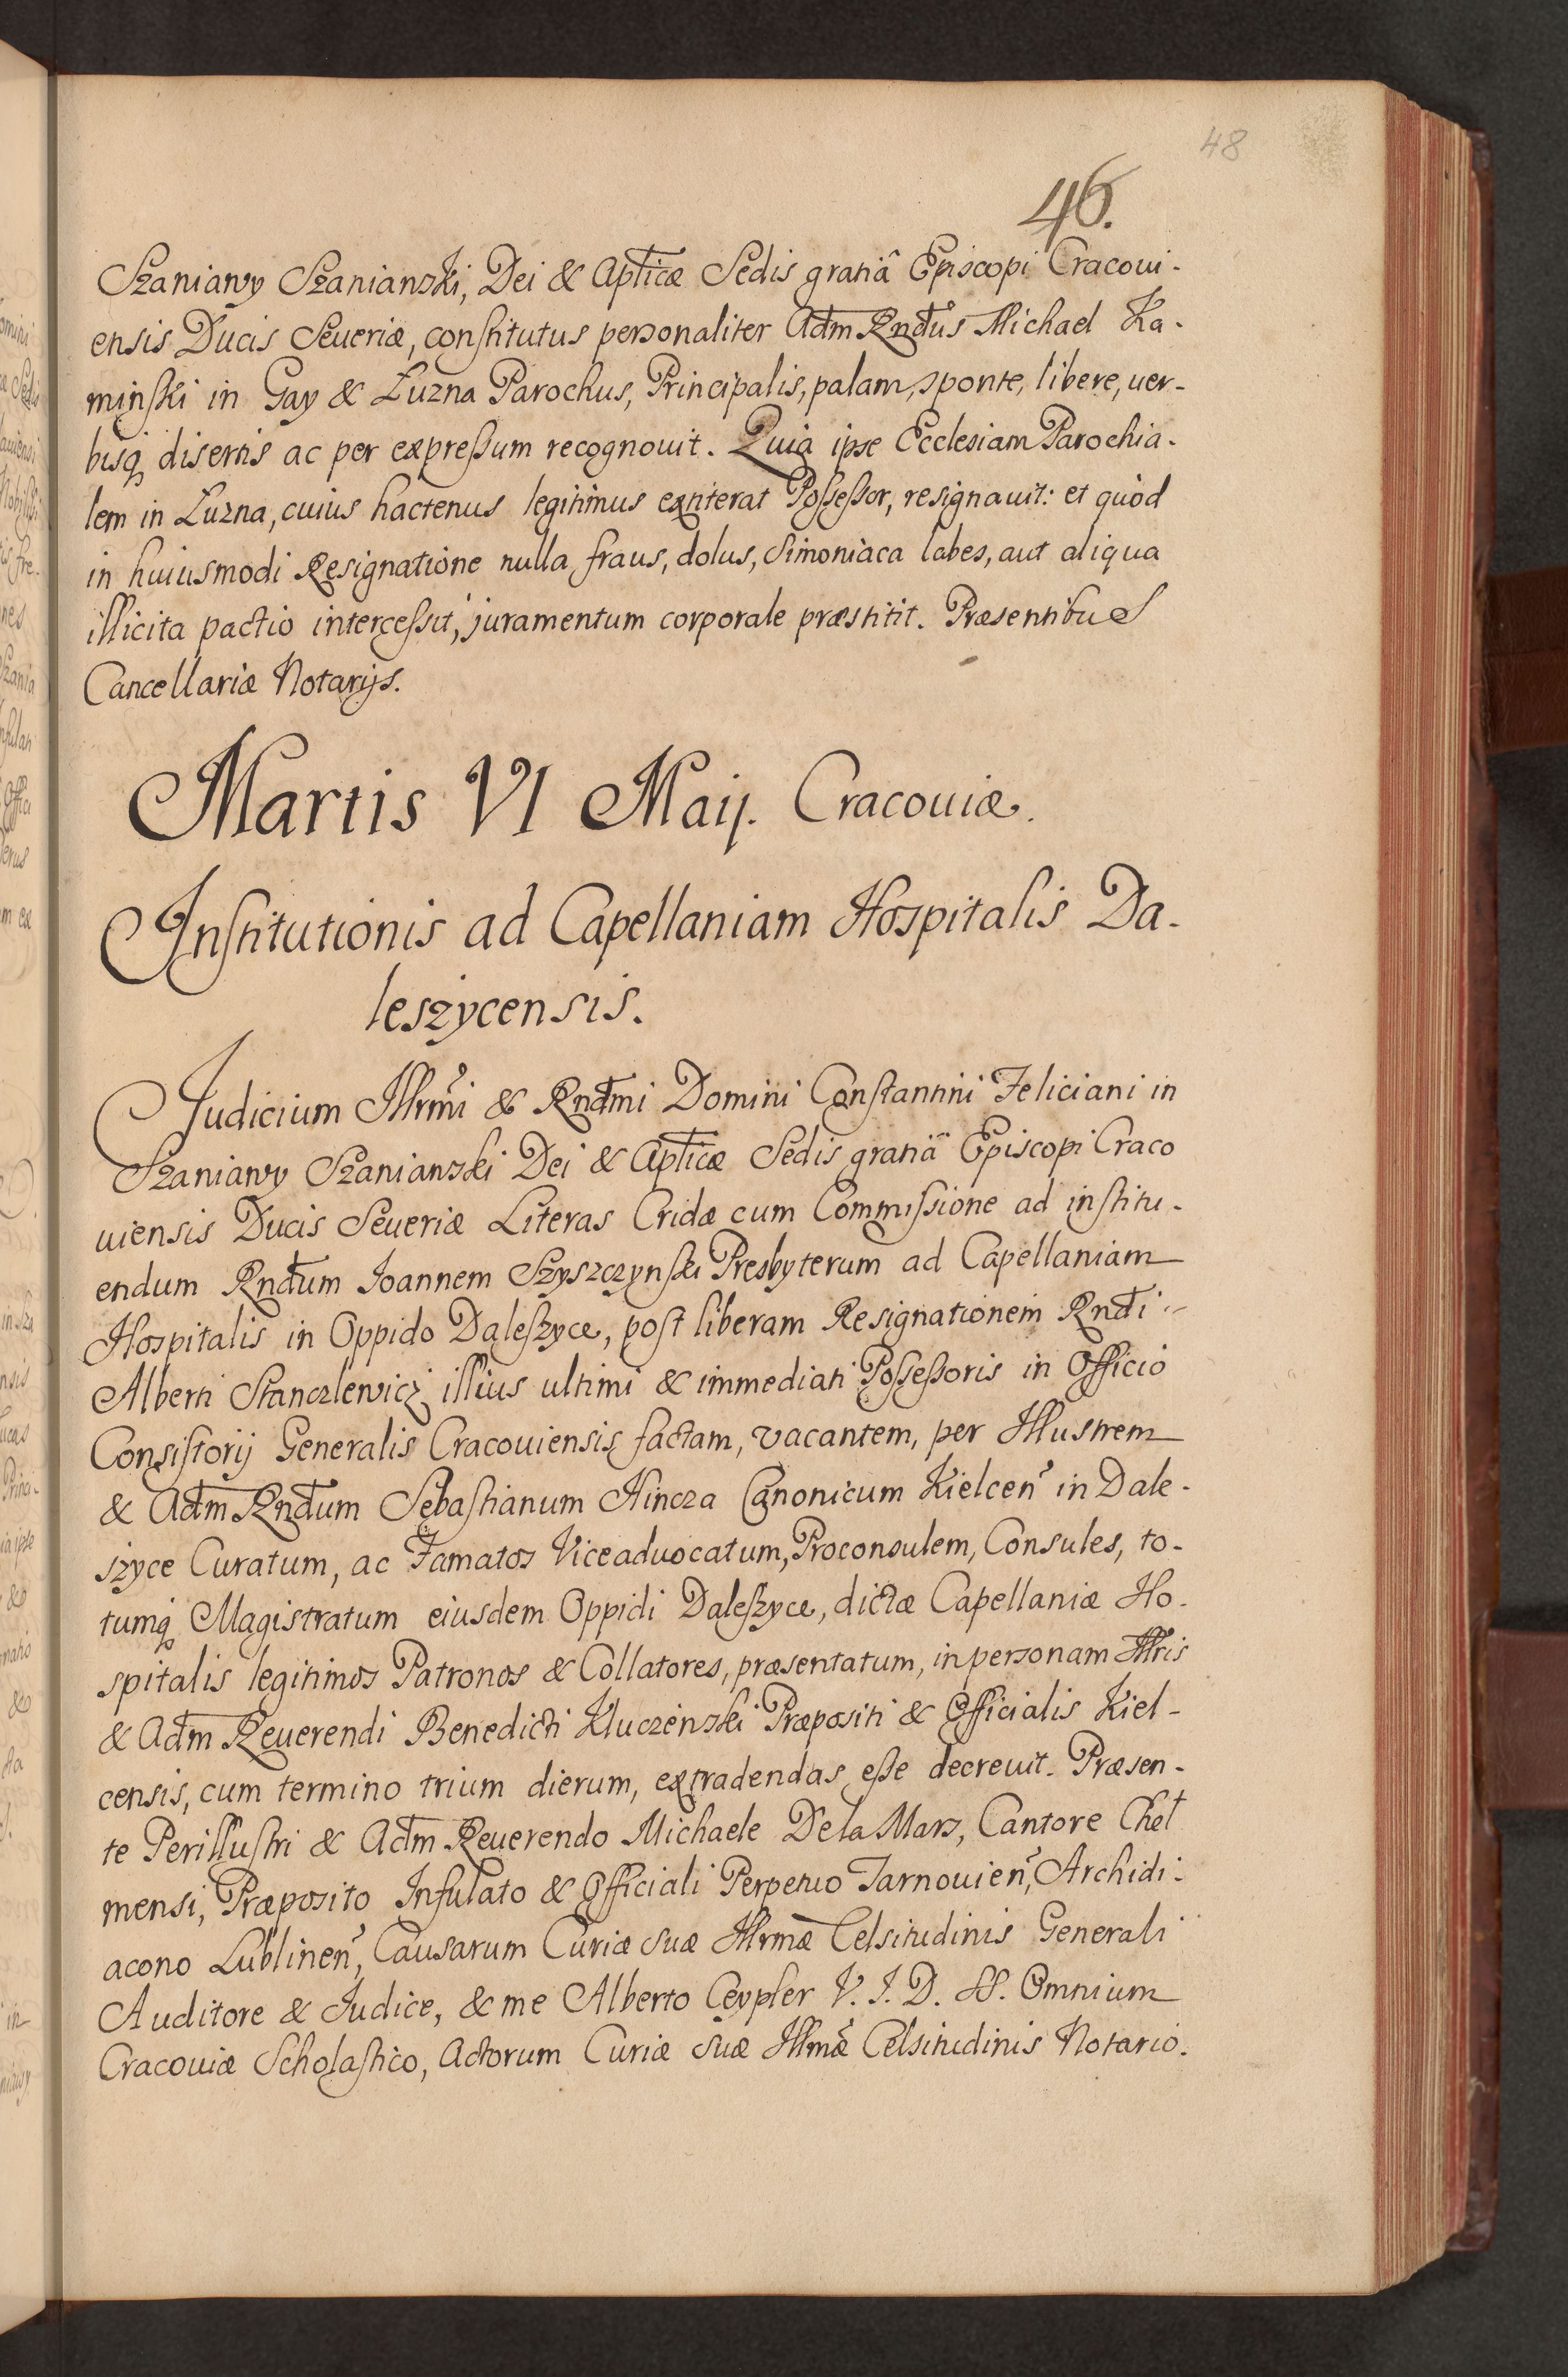 48
46.
Szaniawy Szaniawski, Dei & Aplicæ Sedis gratiâ Episcopi Cracoui-
ensis Ducis Seueriæ, constitutus personaliter Adm Rndus Michael Ka-
minski in Gay & Luzna Parochus, Principalis, palam, sponte, libere, uer-
bisq disertis ac per expressum recognouit. Quia ipse Ecclesiam Parochia-
lem in Luzna, cuius hactenus legitimus extiterat Possessor, resignauit: et quod
in huiusmodi Resignatione nulla fraus, dolus, Simoniaca labes, aut aliqua
illicita pactio intercessit, juramentum corporale præstitit. Præsentibus
Cancellariæ Notarijs.
Martis VI Maij. Cracouiæ.
Institutionis ad Capellaniam Hospitalis Da-
leszycensis.
Judicium Illrmi & Rndmi Domini Constantini Feliciani in
Szaniawy Szaniawski Dei & Aplicæ Sedis gratiâ Episcopi Craco
uiensis Ducis Seueriæ Literas Cridæ cum Commissione ad institu-
endum Rndum Joannem Szyszczynski Presbyterum ad Capellaniam
Hospitalis in Oppido Daleszyce, post liberam Resignationem Rndi
Alberti Stanczlewicz illius ultimi & immediati Possessoris in Officio
Consistorij Generalis Cracouiensis factam, vacantem, per Illustrem
& Adm Rndum Sebastianum Hincza Canonicum Kielcen in Dale-
szyce Curatum, ac Famatos Viceaduocatum, Proconsulem, Consules, to-
tumq Magistratum eiusdem Oppidi Daleszyce, dictæ Capellaniæ Ho-
spitalis legitimos Patronos & Collatores, præsentatum, in personam Illris
& Adm Reuerendi Benedicti Kluczenski Præpositi & Officialis Kiel-
censis, cum termino trium dierum, extradendas esse decreuit. Præsen-
te Perillustri & Adm Reuerendo Michaele De la Mars, Cantore Chel
mensi, Præposito Infulato & Officiali Perpetuo Tarnouien, Archidi-
acono Lublinen, Causarum Curiæ suæ Illrmæ Celsitudinis Generali
Auditore & Judice, & me Alberto Ceypler V. J. D. SS. Omnium
Cracouiæ Scholastico, Actorum Curiæ suæ Illmæ Celsitudinis Notario.